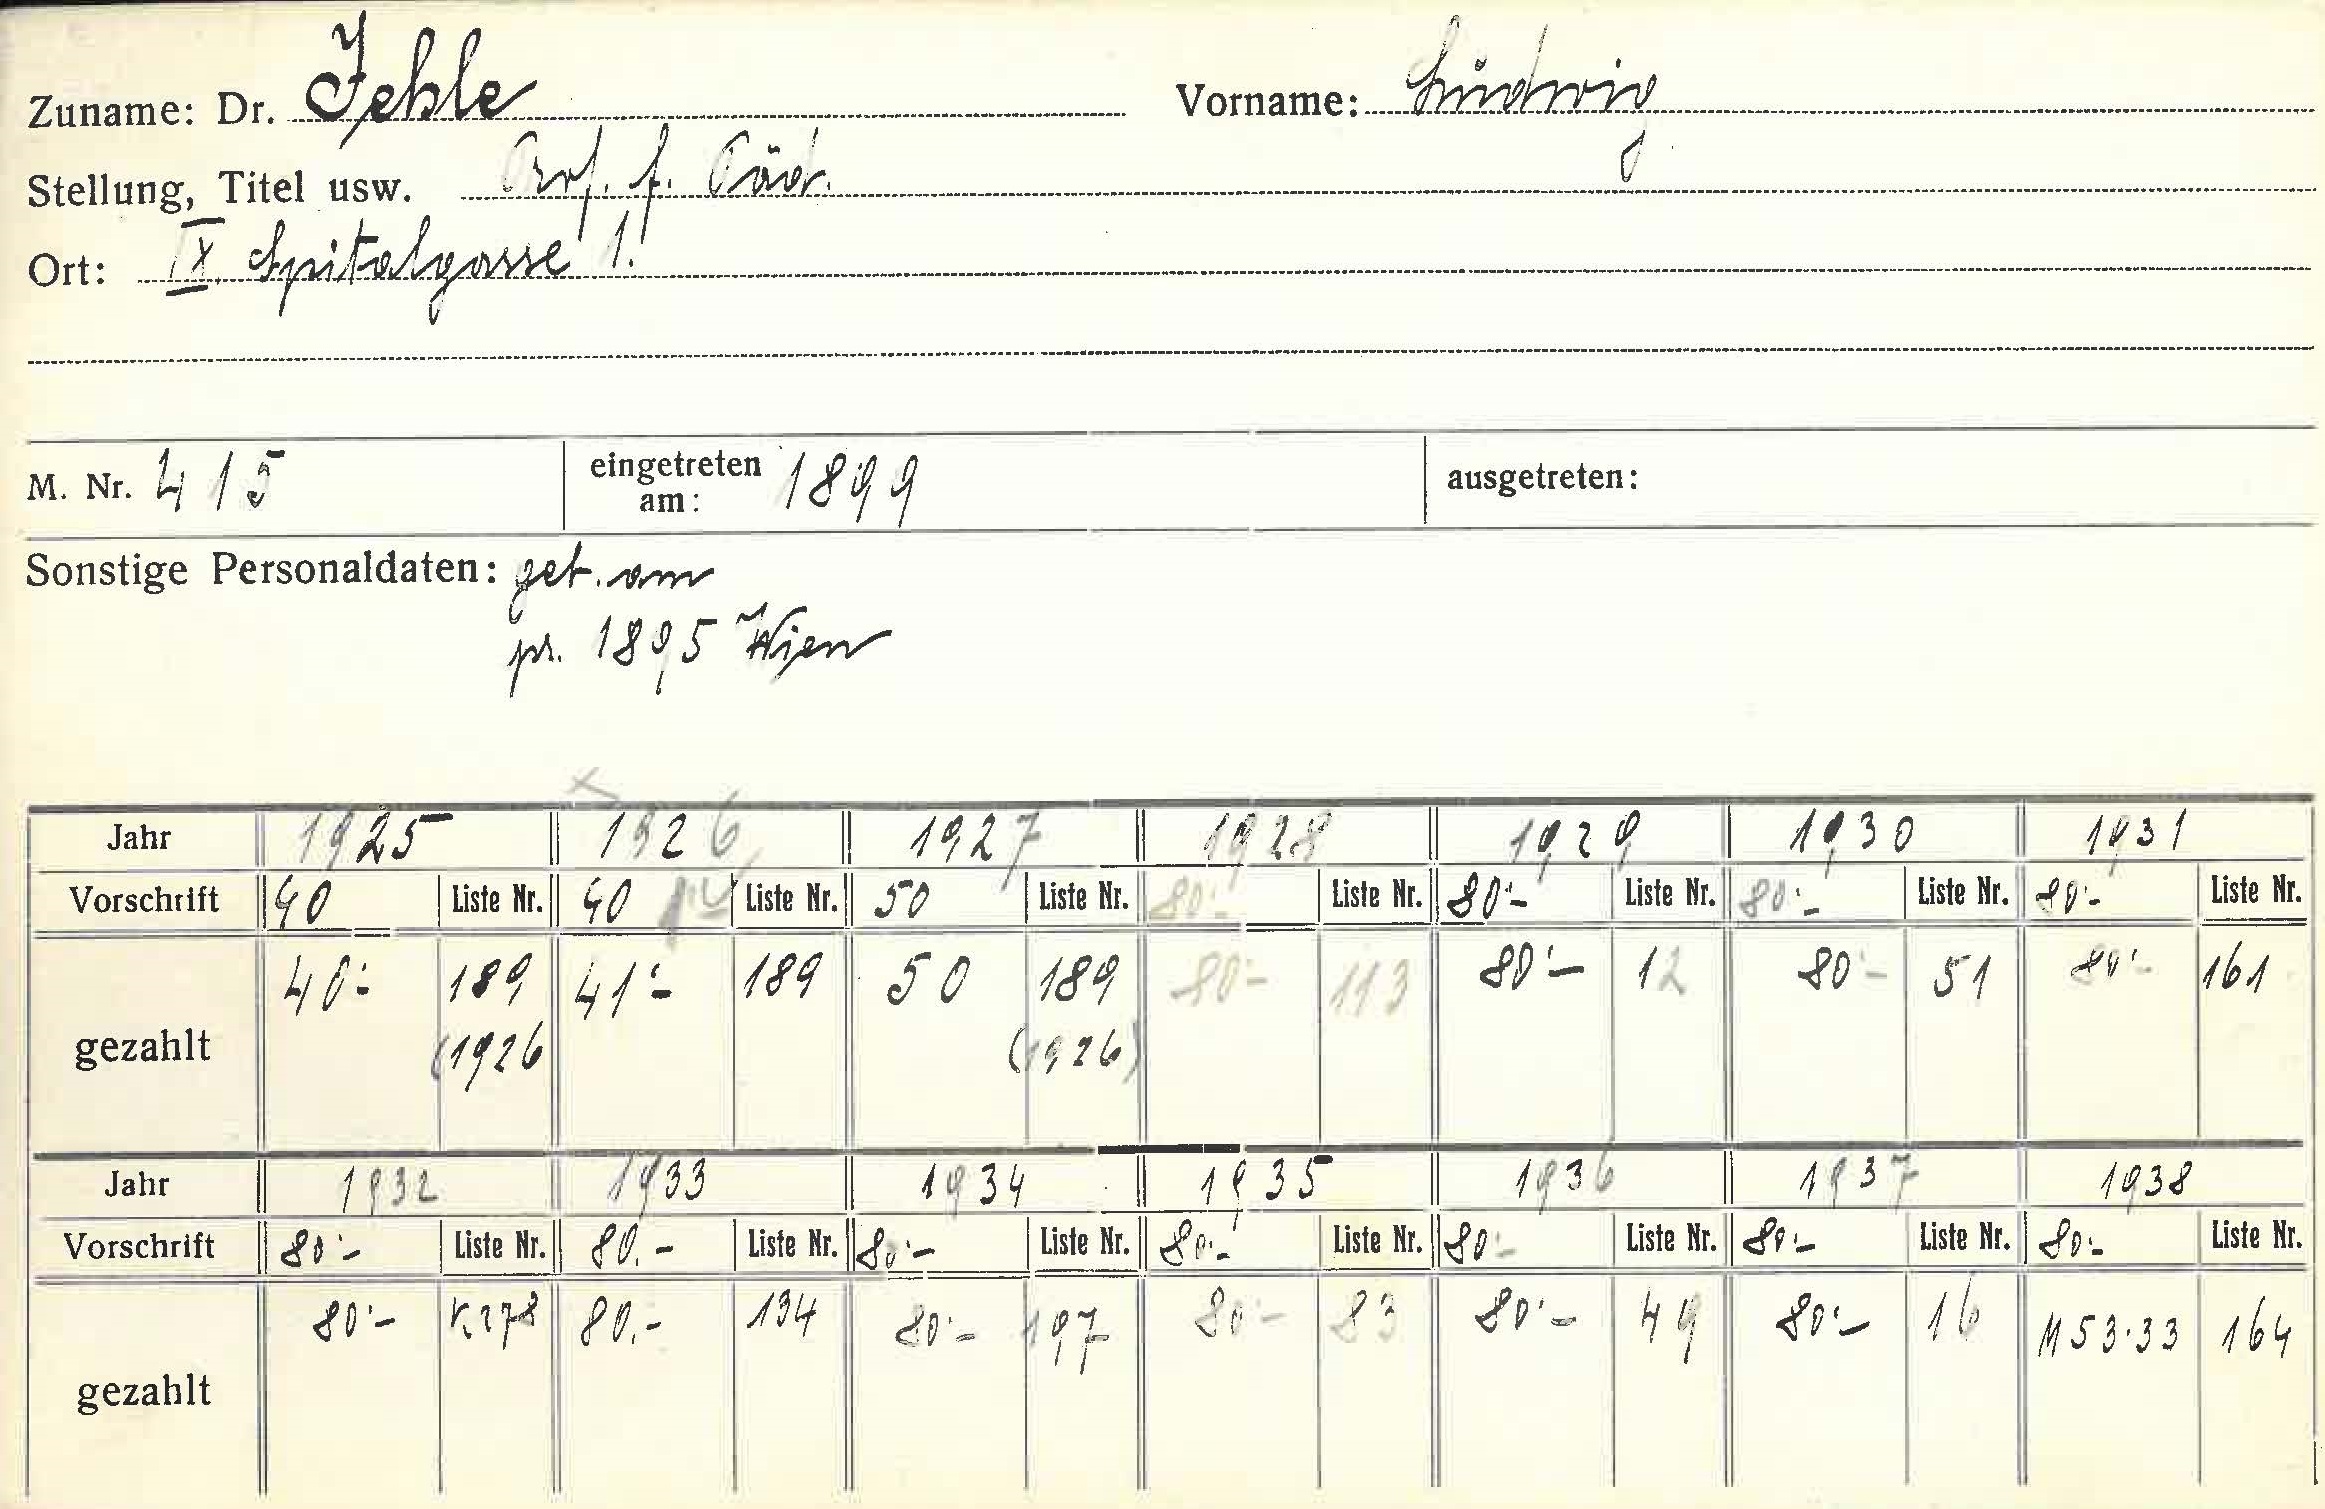 Zuname: Dr. Jehle Vorname: Ludwig
Stellung, Titel usw. Prof. f. Päd.
Ort: IX Spitalgasse 1.
M. Nr. 415 eingetreten am: 1899 ausgetreten:
Sonstige Personaldaten: geb. am
pr. 1895 Wien
Jahr 1925 1926 1927 1928 1929 1930 1931
Vorschrift 40 Liste Nr. 40 Liste Nr. 50 Liste Nr. 80.- Liste Nr. 80.- Liste Nr. 80.- Liste Nr. 80.- Liste Nr.
40.- 189 41.- 189 50 189 80.- 113 80.- 12 80.- 51 80.- 161
gezahlt (1926 (1926)
Jahr 1932 1933 1934 1935 1936 1937 1938
Vorschrift 80.- Liste Nr. 80.- Liste Nr. 80.- Liste Nr. 80.- Liste Nr. 80.- Liste Nr. 80.- Liste Nr. 80.- Liste Nr.
80.- K278 80.- 134 80.- 197 80.- 83 80.- 49 80.- 16 M 53.33 164
gezahlt